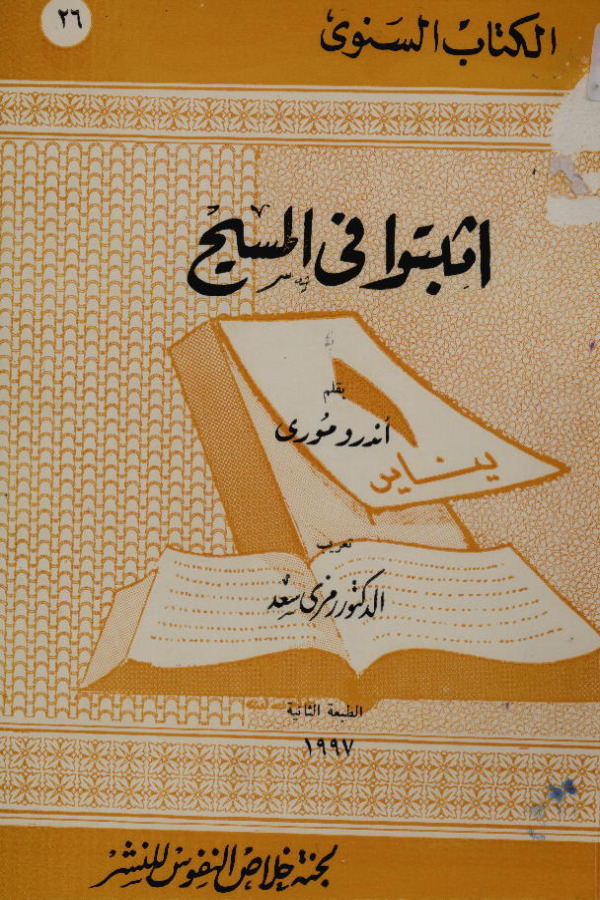 ٢٦
الكتاب السنوى
اثبتوا فى المسيح
بقلم
أندرو مُورى
١
يناير
تعريب
الدكتور رمزى سعد
الطبعة الثانية
١٩٩٧
لجنة خلاص النفوس للنشر